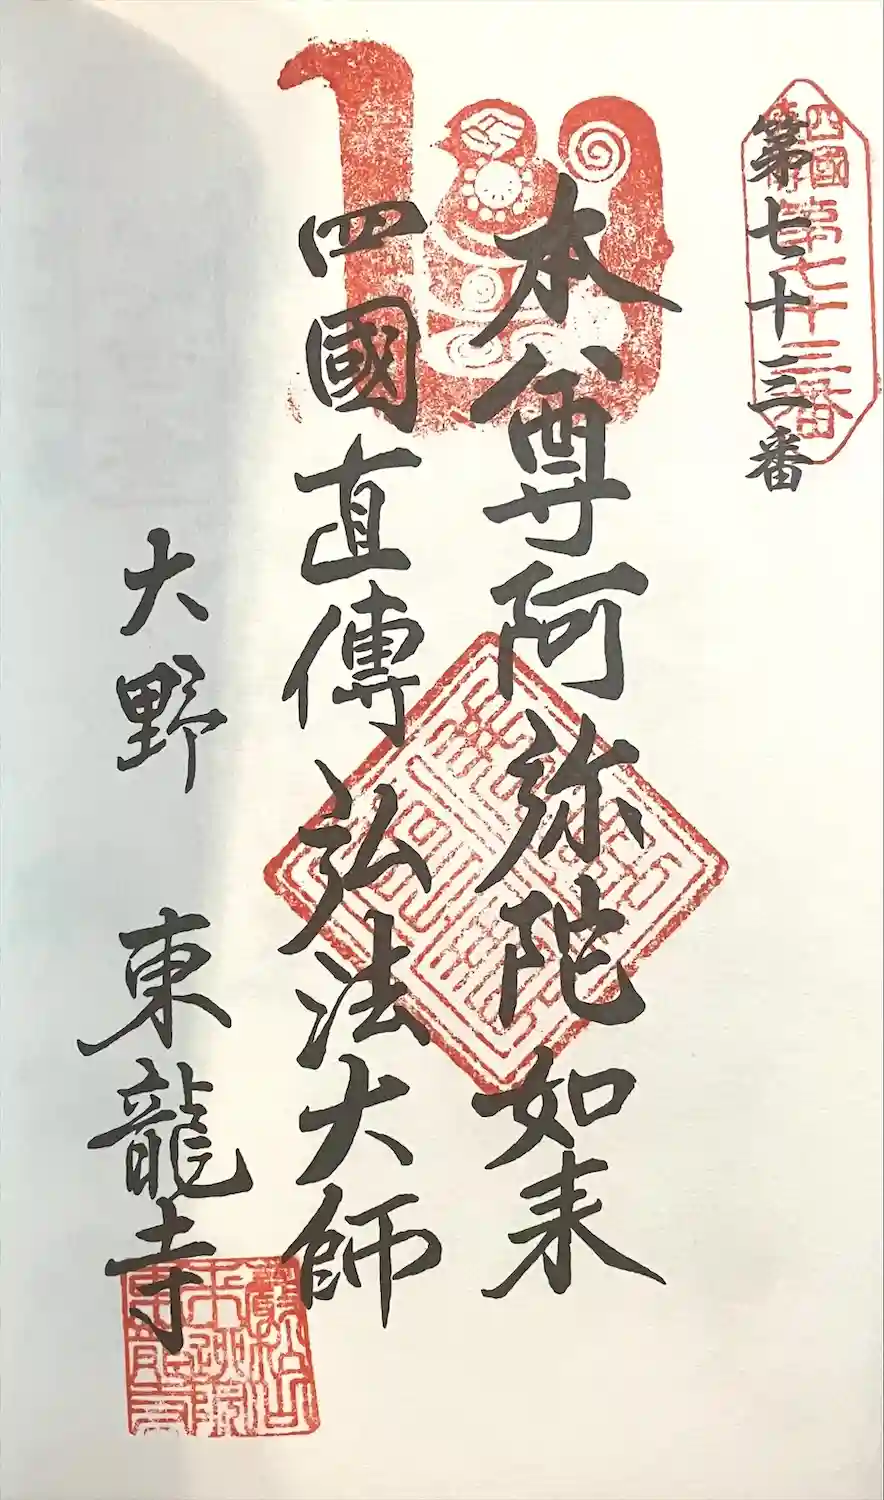 第七十三番
四國
第七十三番
本尊阿弥陀如来
四國直傳弘法大師
大野 東龍寺